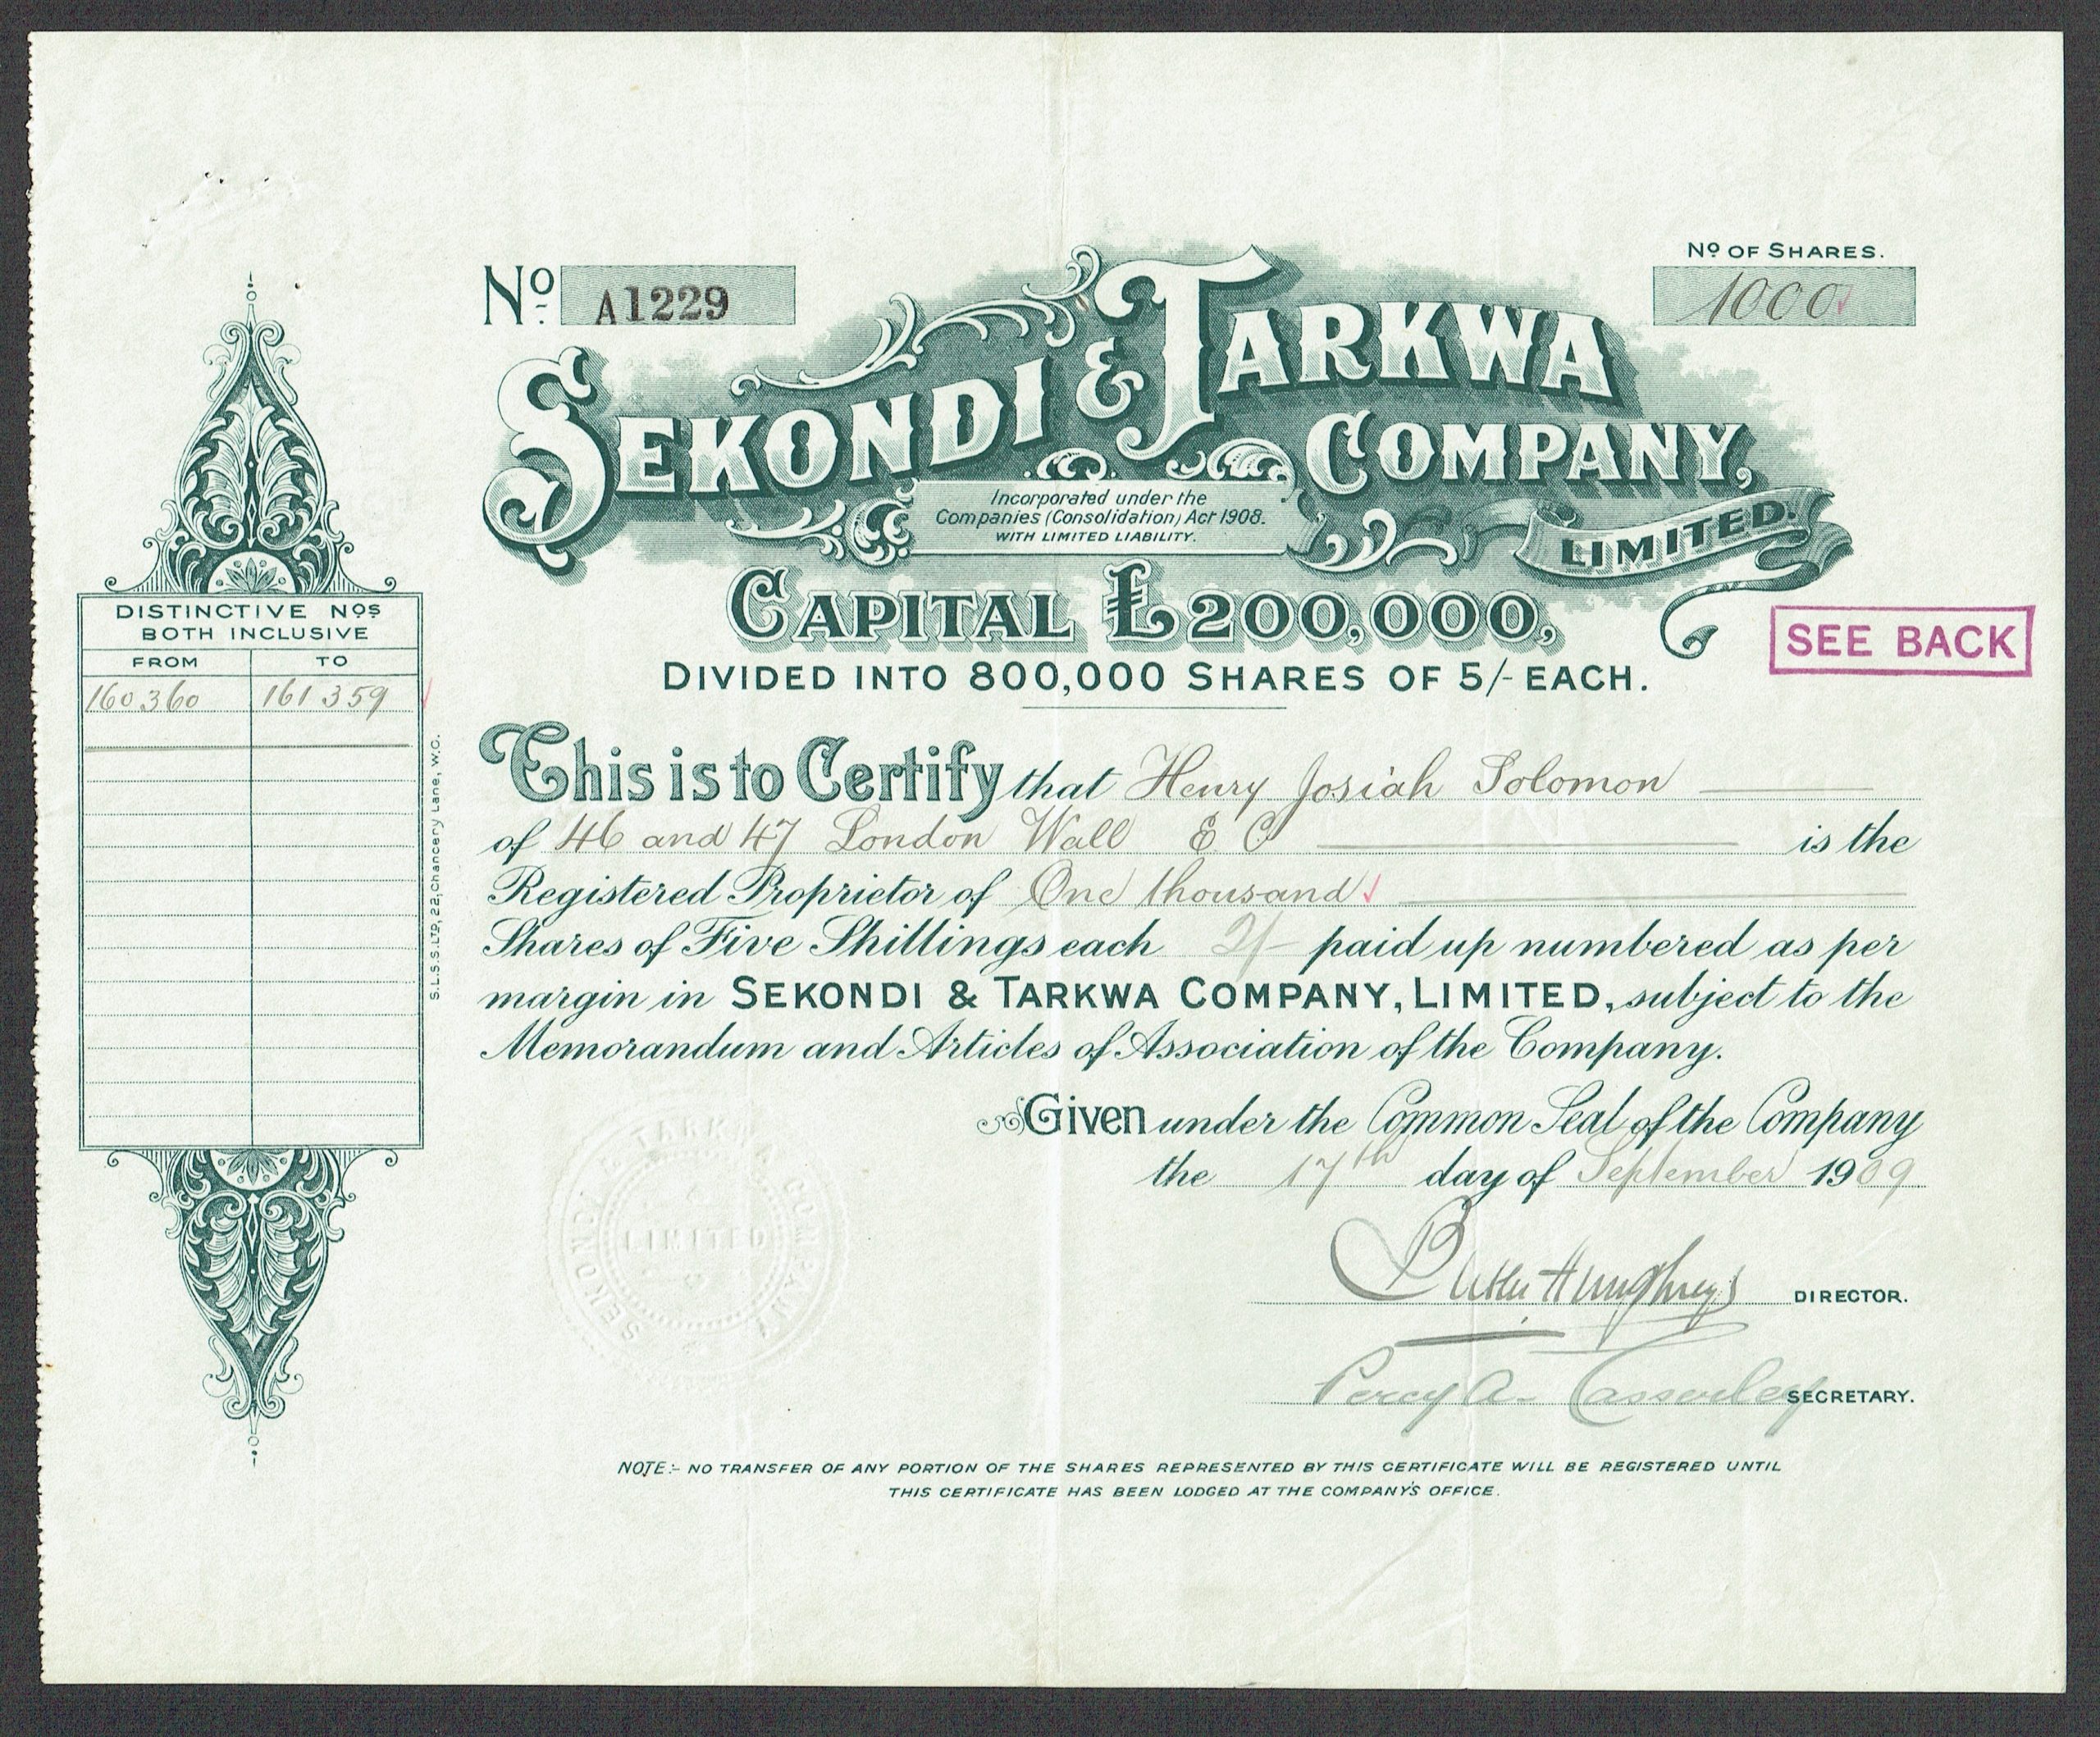 No. A1229
No. OF SHARES.
1000
SEKONDI & TARKWA
COMPANY,
LIMITED.
Incorporated under the
Companies (Consolidation) Act 1908.
WITH LIMITED LIABILITY.
CAPITAL £200,000,
DIVIDED INTO 800,000 SHARES OF 5/- EACH.
SEE BACK
DISTINCTIVE NOS
BOTH INCLUSIVE
FROM TO
160360 161359
S.L.S.S. LTD, 22, Chancery Lane, W.C.
This is to Certify that Henry Josiah Solomon
of 46 and 47 London Wall E C is the
Registered Proprietor of One thousand
Shares of Five Shillings each 2/- paid up numbered as per
margin in SEKONDI & TARKWA COMPANY, LIMITED, subject to the
Memorandum and Articles of Association of the Company.
Given under the Common Seal of the Company
the 17th day of September 1909
Humphreys DIRECTOR.
Percy A. Casserley SECRETARY.
SEKONDI & TARKWA COMPANY
LIMITED
NOTE:- NO TRANSFER OF ANY PORTION OF THE SHARES REPRESENTED BY THIS CERTIFICATE WILL BE REGISTERED UNTIL
THIS CERTIFICATE HAS BEEN LODGED AT THE COMPANY'S OFFICE.